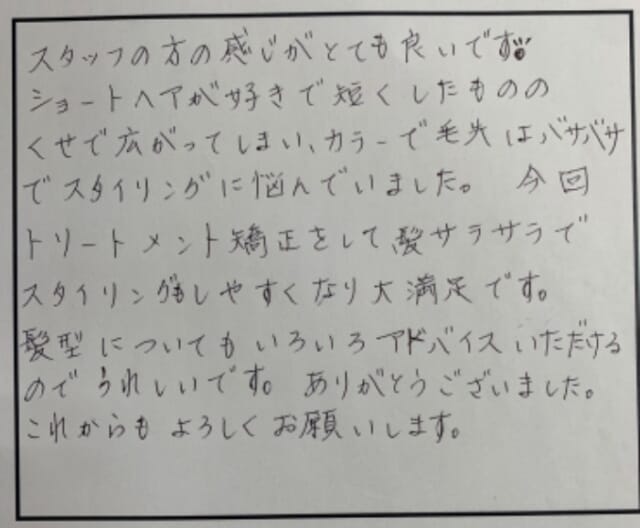 スタッフの方の感じがとても良いです。
ショートヘアが好きで短くしたものの
くせで広がってしまい、カラーで毛先はバサバサ
でスタイリングに悩んでいました。 今回
トリートメント矯正をして髪サラサラで
スタイリングもしやすくなり大満足です。
髪型についてもいろいろアドバイスいただける
のでうれしいです。 ありがとうございました。
これからもよろしくお願いします。